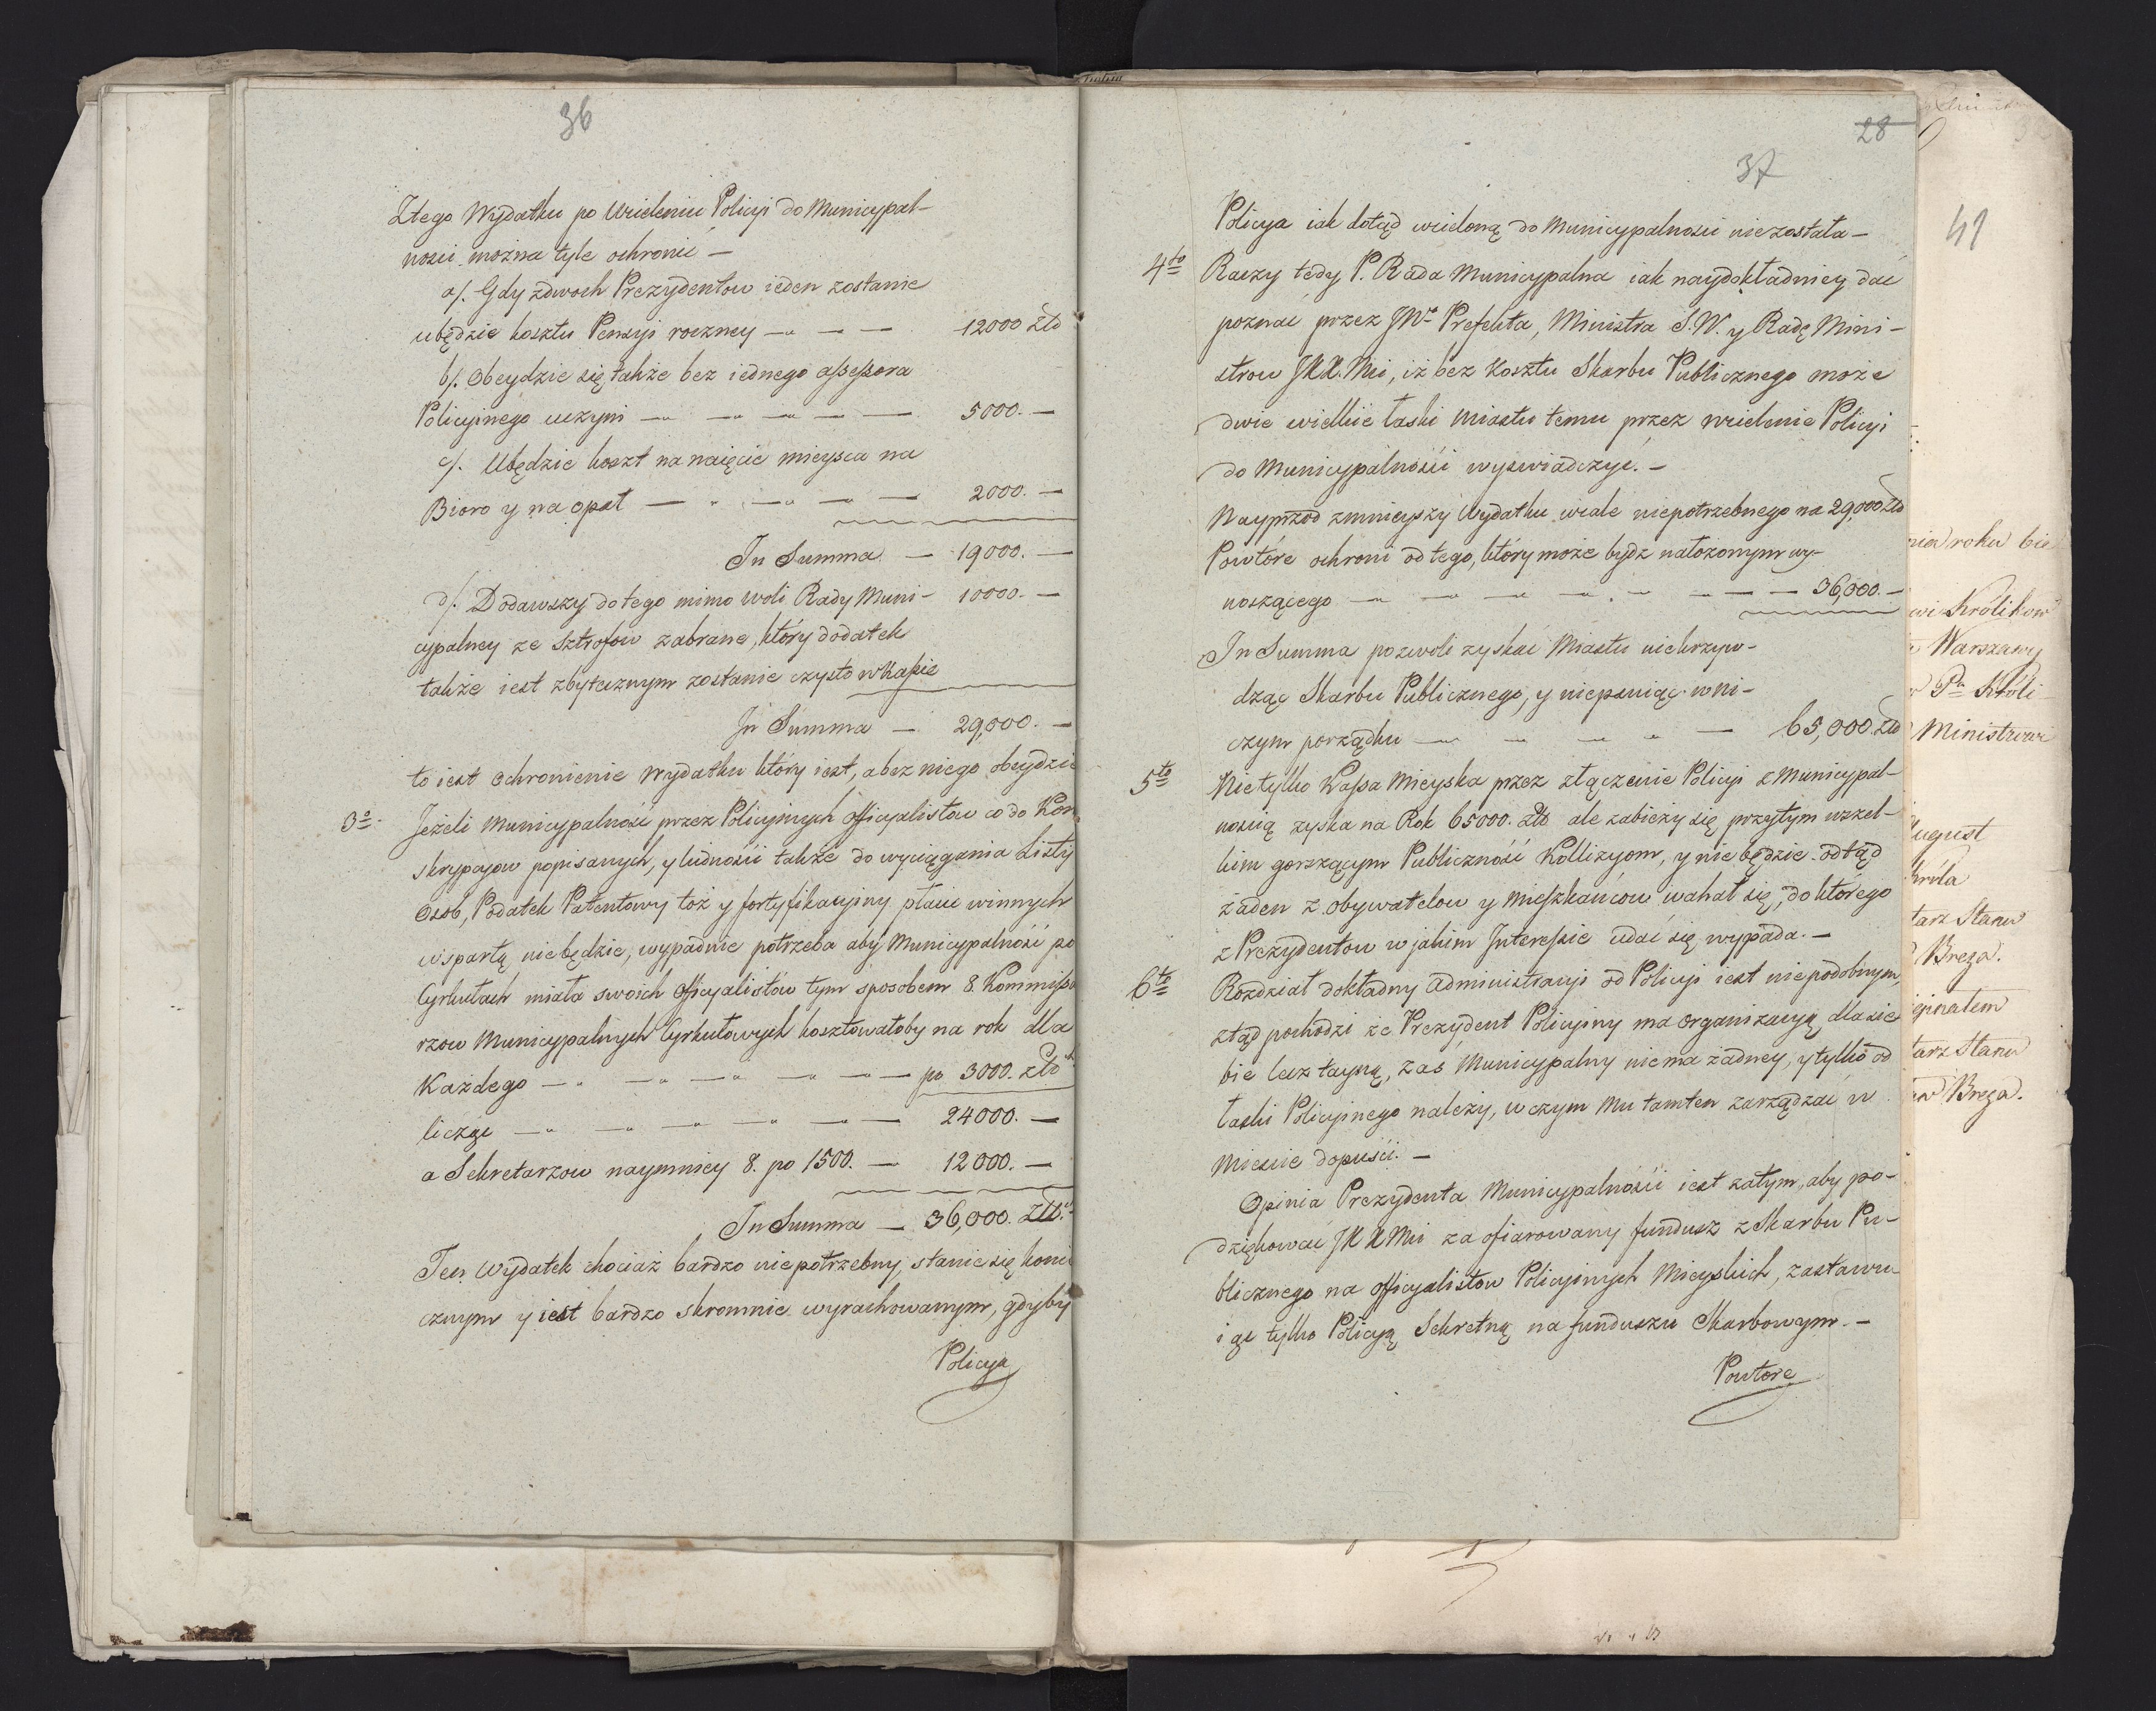 36
Ztego Wydatku po Wcieleniu Policyi do Municypal-
ności można tyle ochronić —
a/. Gdy zdwoch Prezydentow ieden zostanie
ubędzie kosztu Pensyi roczney — — — 12000 Złð
b/. Obeydzie się także bez iednego assessora
Policyinego uczyni — — — — — 5000. —
c/. Ubędzie koszt na naięcie mieysca na
Bioro y na opał — — — — 2000. —
In Summa — 19000. —
d/. Dodawszy do tego mimo woli Rady Muni- 10000. —
cypalney ze sztrofow zabrane, który dodatek
także iest zbytecznym zostanie czysto w Kassie
In Summa — 29,000. —
to iest Ochronienie Wydatku który iest, a bez niego obeydzie
3o. Jeżeli Municypalność przez Policyinych Officyalistow co do Kon
skrypcyow popisanych, y ludności także do wyciągania Listy
Osob, Podatek Patentowy toż y fortyfikacyiny płacić winnych
wspartą niebędzie, wypadnie potrzeba aby Municypalność po
Cyrkułach miała swoich Officyalistów tym sposobem 8. Kommissa
rzow Municypalnych Cyrkułowych kosztowałoby na rok dla
Każdego — — — — — po 3000. złð
licząc — — — — — 24000. —
a Sekretarzow naymniey 8. po 1500. — 12000. —
In Summa — 36,000. Złð.
Ten Wydatek chociaż bardzo niepotrzebny, stanie się koni
cznym y iest bardzo skromnie wyrachowanym, gdyby
Policya
28
37
Policya iak dotąd wcieloną do Municypalności niezostała —
4to Raczy tedy P. Rada Municypalna iak naydokładniey dać
poznać przez JWo Prefekta, Ministra S. W. y Radę Mini-
strow JKK. Mci, iż bez Kosztu Skarbu Publicznego może
dwie wielkie łaski Miastu temu przez wcielenie Policyi
do Municypalności wyświadczyć. —
Nayprzod zmnieyszy Wydatku wcale niepotrzebnego na 29,000 Złð
Powtóre ochroni od tego, który może bydz nałożonym wy-
noszącego — — — — — — 36,000. —
In Summa pozwoli zyskać Miastu niekrzyw-
dząc Skarbu Publicznego, y niepsuiąc w ni-
czym porządku — — — — — 65,000. złð
5to Nietylko Kassa Mieyska przez złączenie Policyi z Municypal-
nością zyska na Rok 65000. Złð ale zabieży się przytym wszel-
kim gorszącym Publiczność Kollizyom, y nie będzie odtąd
żaden z obywatelow y mieszkańcow wahał się, do którego
z Prezydentow w jakim Interessie udać się wypada. —
6to Rozdział dokładny Administracyi od Policyi iest niepodobnym,
ztąd pochodzi że Prezydent Policyiny ma organizacyą, dla sie
bie lecz tayną, zaś Municypalny niema żadney, y tylko od
łaski Policyinego należy, w czym Mu tamten zarządzać w
Mieście dopuści. —
Opinia Prezydenta Municypalności iest zatym, aby po-
dziękować JKKMci za ofiarowany fundusz z Skarbu Pu-
blicznego na Officyalistow Policyinych Mieyskich, zastawu
iąc tylko Policyą Sekretną na funduszu Skarbowym. —
Powtore
41
nia roku bie
wi Królikow
Warszawy
Pa Króli
Ministrowi
August
Króla
tarz Stanu
Breza.
ginałem
tarz Stanu
Breza.